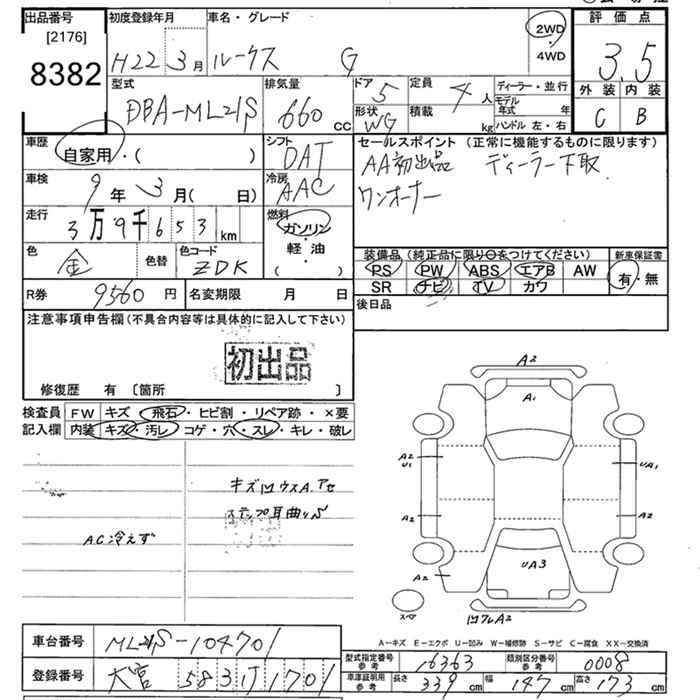 出品番号 初度登録年月 車名・グレード 評価点
[2176]
8382
H22年 3月 ルークス G
2WD
・
4WD
3.5
外装 内装
C B
型式 排気量 ドア 定員 ディーラー・並行
DBA-ML21S 660 cc 5 4人
モデル年式 年
形状 積載 ハンドル 左・右
WG kg
車歴 シフト セールスポイント (正常に機能するものに限ります)
自家用・( ) DAT AA初出品 ディーラー下取
車検 冷房 ワンオーナー
9年 3月( 日) AAC
走行 燃料
3万9千653km ガソリン・軽油
( )
色 色替 色コード
金 ZDK
装備品 (純正品に限り○をつけてください) 新車保証書
PS PW ABS エアB AW 有・無
SR ナビ TV カワ
R券 9560円 名変期限 月 日 後日品
注意事項申告欄(不具合内容等は具体的に記入して下さい)
初出品
修復歴 有 〔箇所 〕
検査員 FW キズ・飛石・ヒビ割・リペア跡・×要
記入欄 内装 キズ・汚レ・コゲ・穴・スレ・キレ・破レ
AC冷えず
A2
A1
A2
U1
UA1
A2
A2
A2
UA3
凹フレA2
スペア
A-キズ E-エクボ U-凹み W-補修跡 S-サビ C-腐食 XX-交換済
車台番号 ML21S-104701
登録番号 大宮 583 1701
型式指定番号 参考 16363 類別区分番号 参考 0008
車庫証明用 参考 長さ 339cm 幅 147cm 高さ 173cm